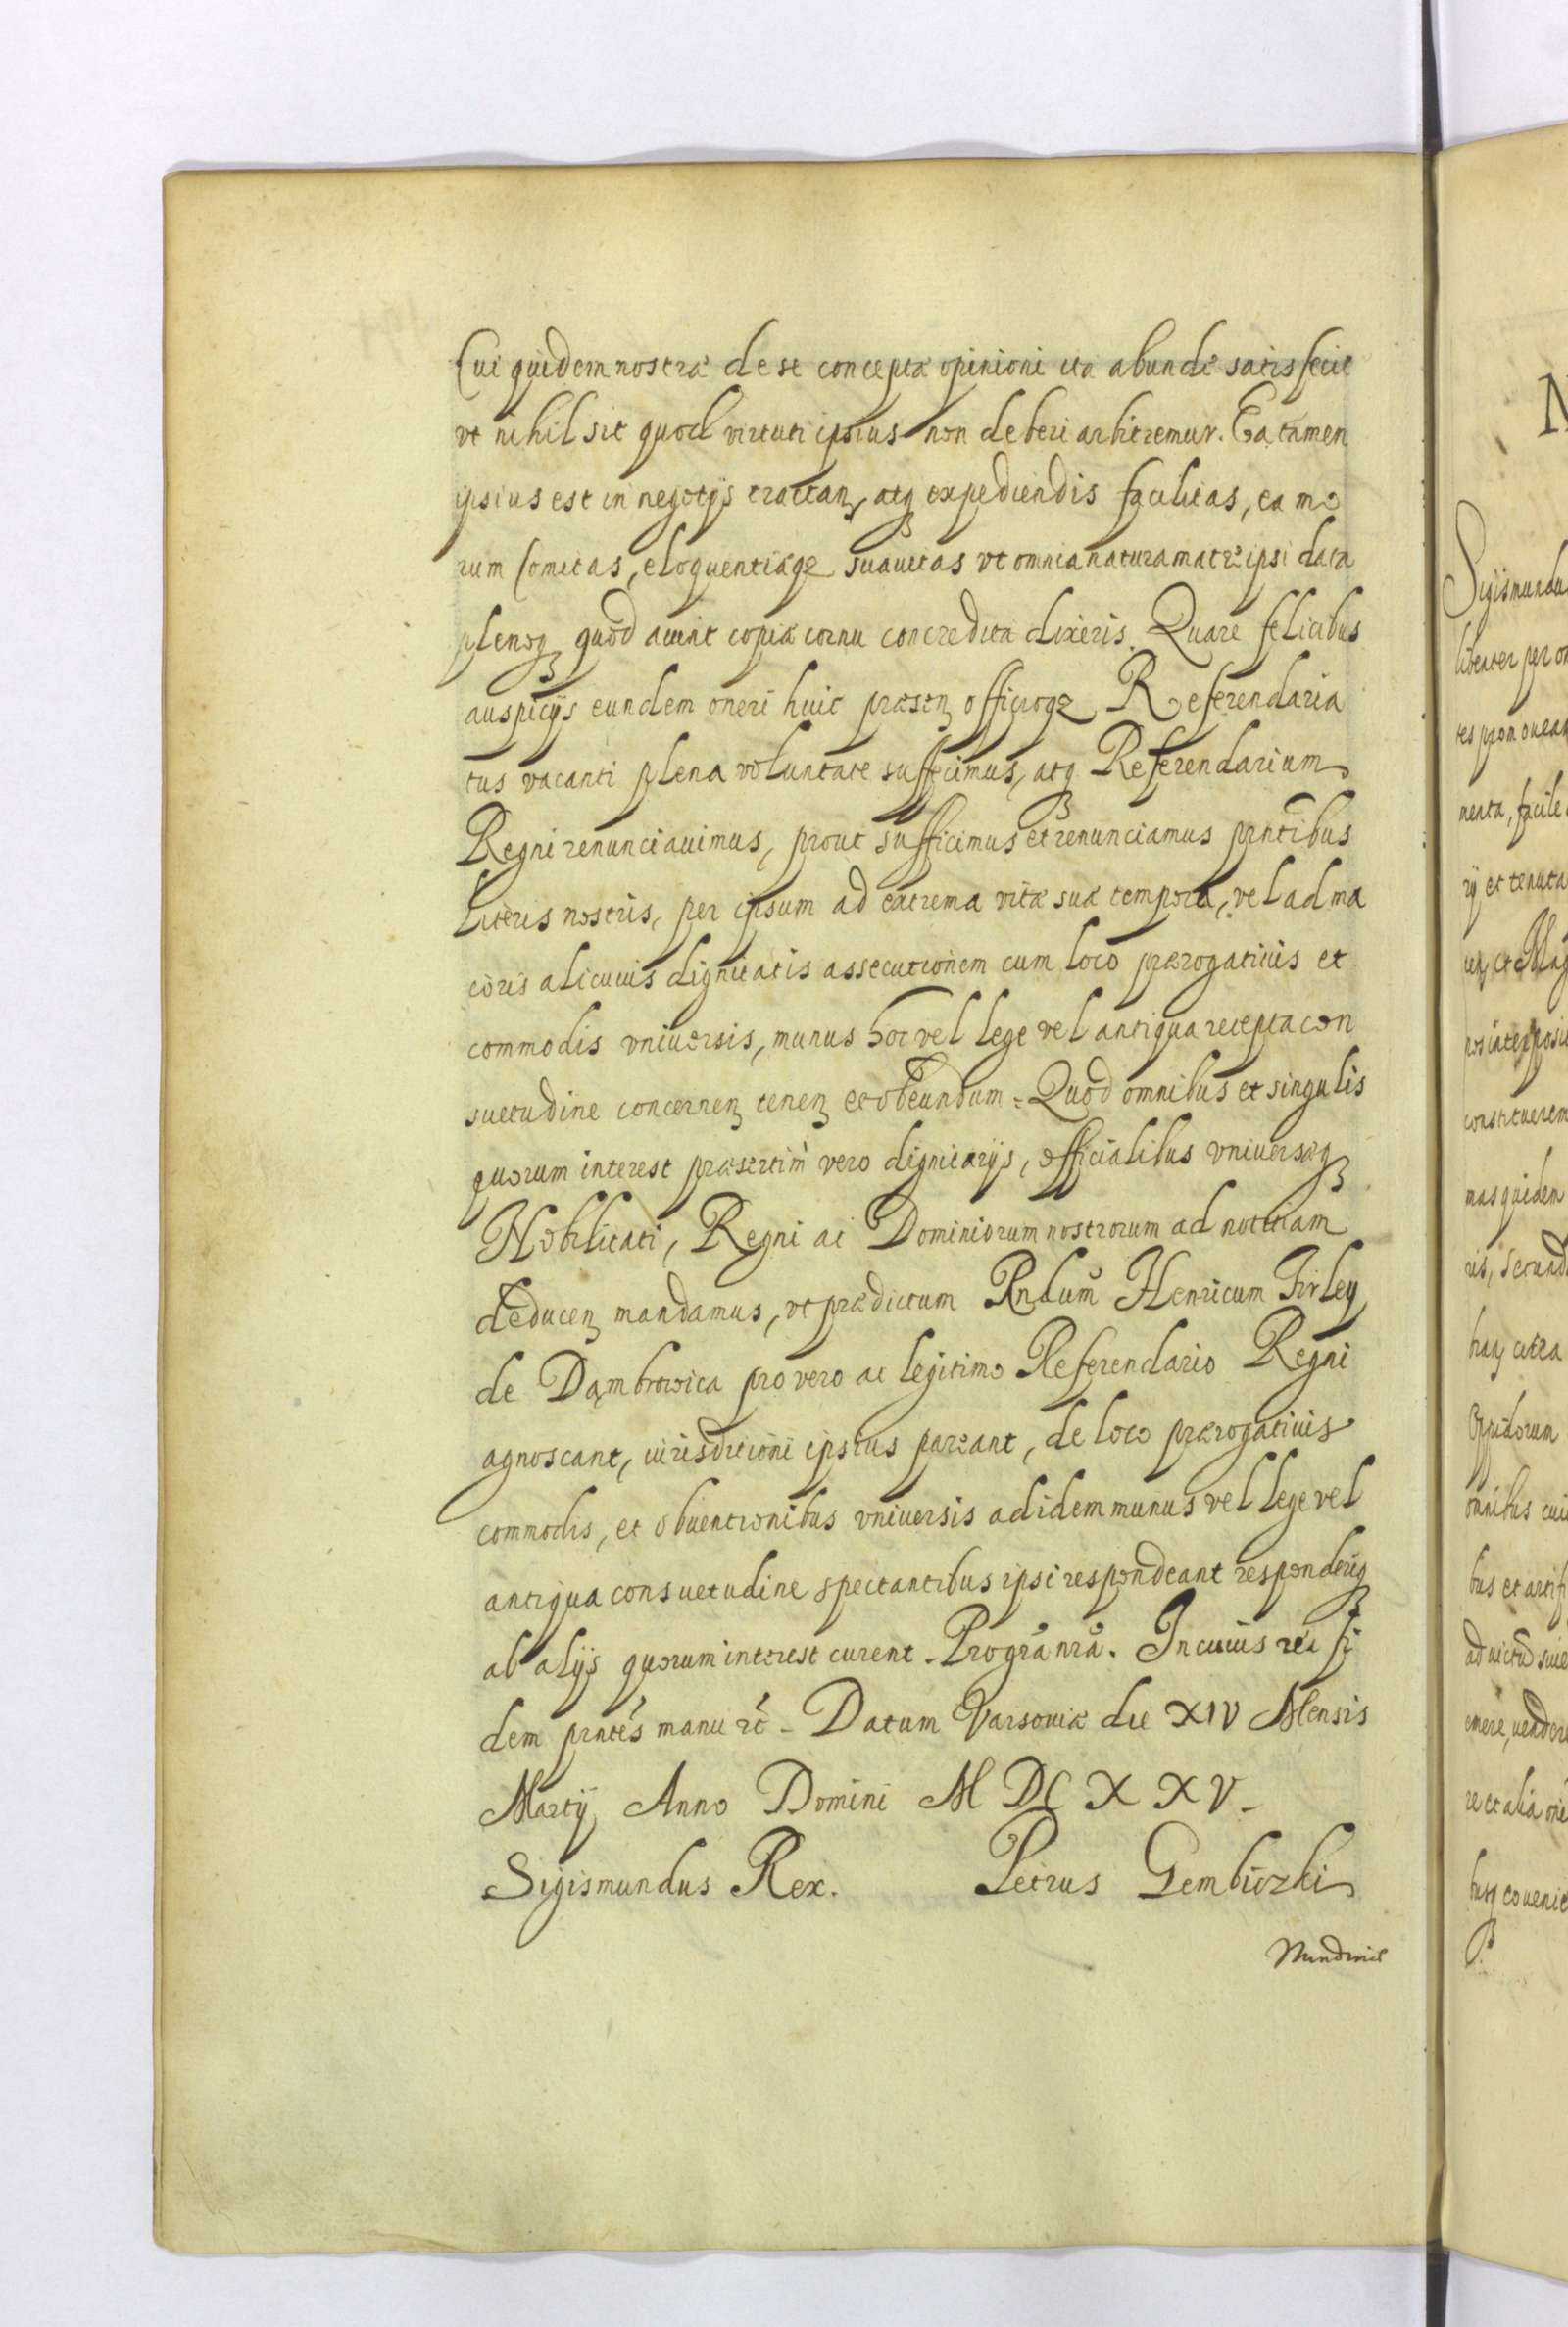 Cui quidem nostræ de se conceptæ opinioni ita abundè satisfecit
vt nihil sit quod virtuti ipsius non deberi arbitremur. Ea tamen
ipsius est in negotijs tractan, atq expediendis facilitas, ea mo
rum comitas, eloquentiæqe suauitas vt omnia natura matre ipsi data
plenoq quod aiunt copiæ cornu concredita dixeris. Quare felicibus
auspicijs eundem oneri huic præsen officioqe Referendaria
tus vacanti plena voluntate suffecimus, atq Referendarium
Regni renunciauimus, prout sufficimus et renunciamus pntibus
Literis nostris, per ipsum ad extrema vitæ suæ tempora, vel ad ma
ioris alicuius dignitatis assecutionem cum loco prærogatiuis et
commodis vniuersis, munus hoc vel lege vel antiqua recepta con
suetudine concernen tenen et obeundum. Quod omnibus et singulis
quorum interest præsertim vero dignitarijs, officialibus vniuersæq
Nobilitati, Regni ac Dominiorum nostrorum ad notitiam
deducen mandamus, vt prædictum Rndum Henricum Firley
de Dąmbrowica pro vero ac legitimo Referendario Regni
agnoscant, iurisditioni ipsius pareant, de loco prærogatiuis
commodis, et obuentionibus vniuersis ad idem munus vel lege vel
antiqua consuetudine spectantibus ipsi respondeant responderiq
ab alijs quorum interest curent. Pro gra nra. In cuius rei fi
dem pntes manu rc. Datum Varsouiæ die XIV Mensis
Martij Anno Domini M DC X X V.
Sigismundus Rex. Petrus Gembiczki
N
Sigismundu
libenter per o
tes promouea
menta, facile
rij et tenuta
nos interposi
constituerem
mas quidem
ris, secund
Oppidorum
omnibus cui
bus et artifi
emere, vendere
re et alia